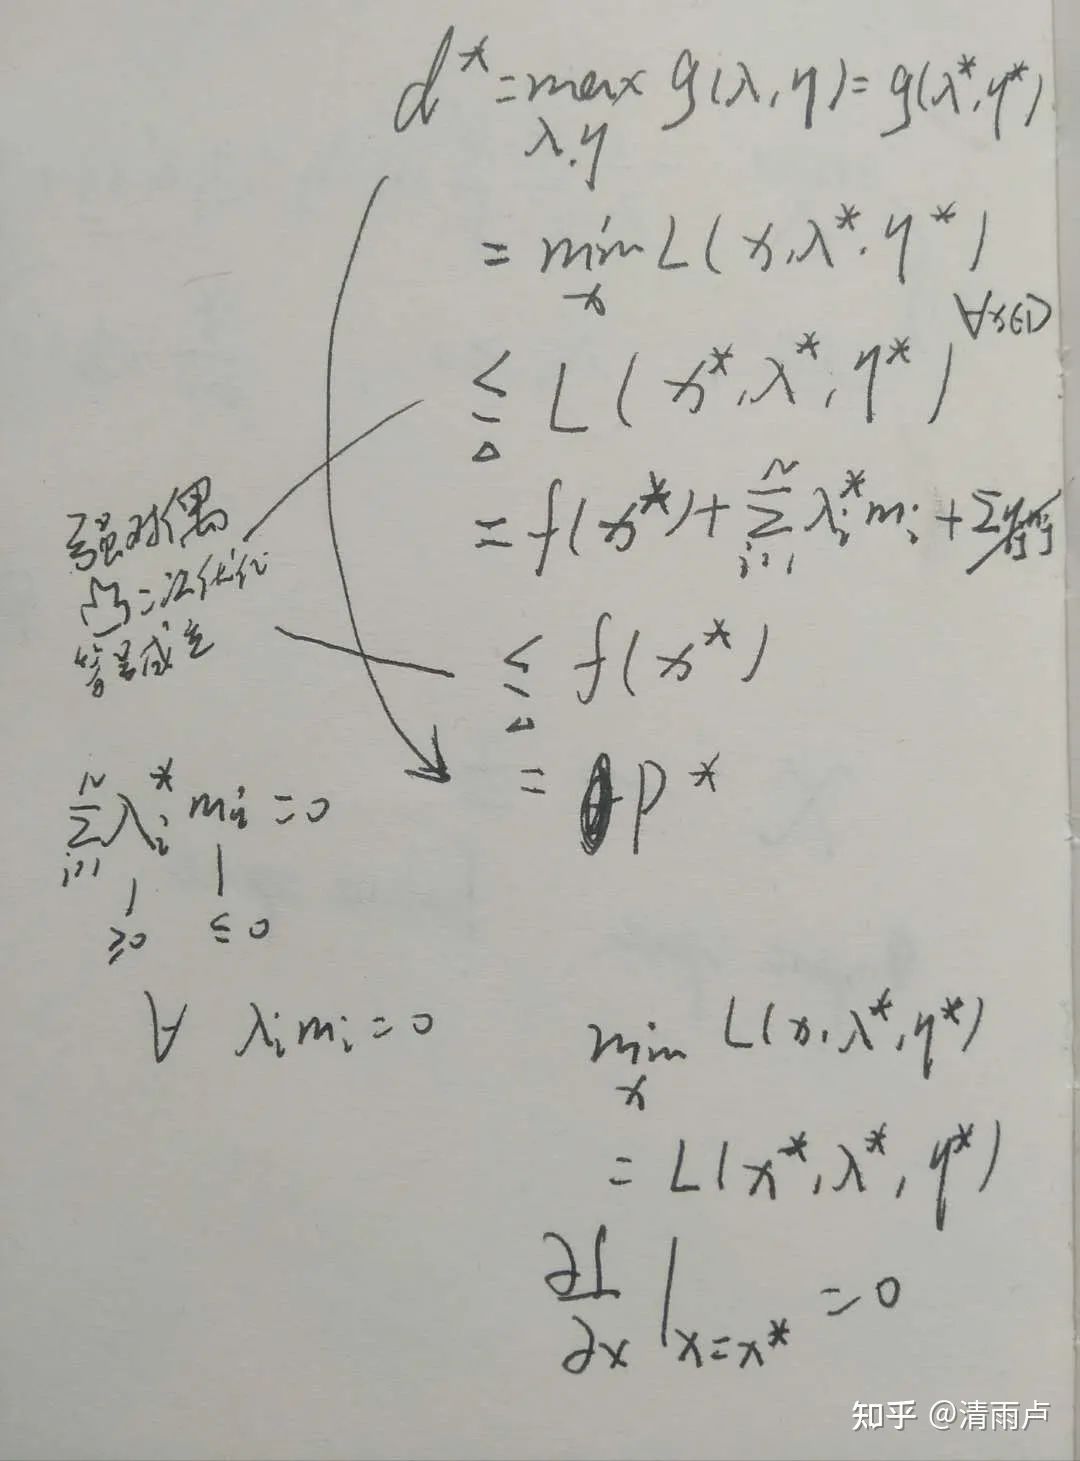 d* = max g(λ, η) = g(λ*, η*)
λ, η
= min L(x, λ*, η*)
x
∀x∈D
≤ L(x*, λ*, η*)
△
= f(x*) + Σ λi* mi + Σ
N
i=1
≤ f(x*)
△
= p*
强对偶
凸二次优化
等号成立
N
Σ λi* mi = 0
i=1
≥0 ≤0
∀ λi mi = 0
min L(x, λ*, η*)
x
= L(x*, λ*, η*)
∂L/∂x |x=x* = 0
知乎 @清雨卢